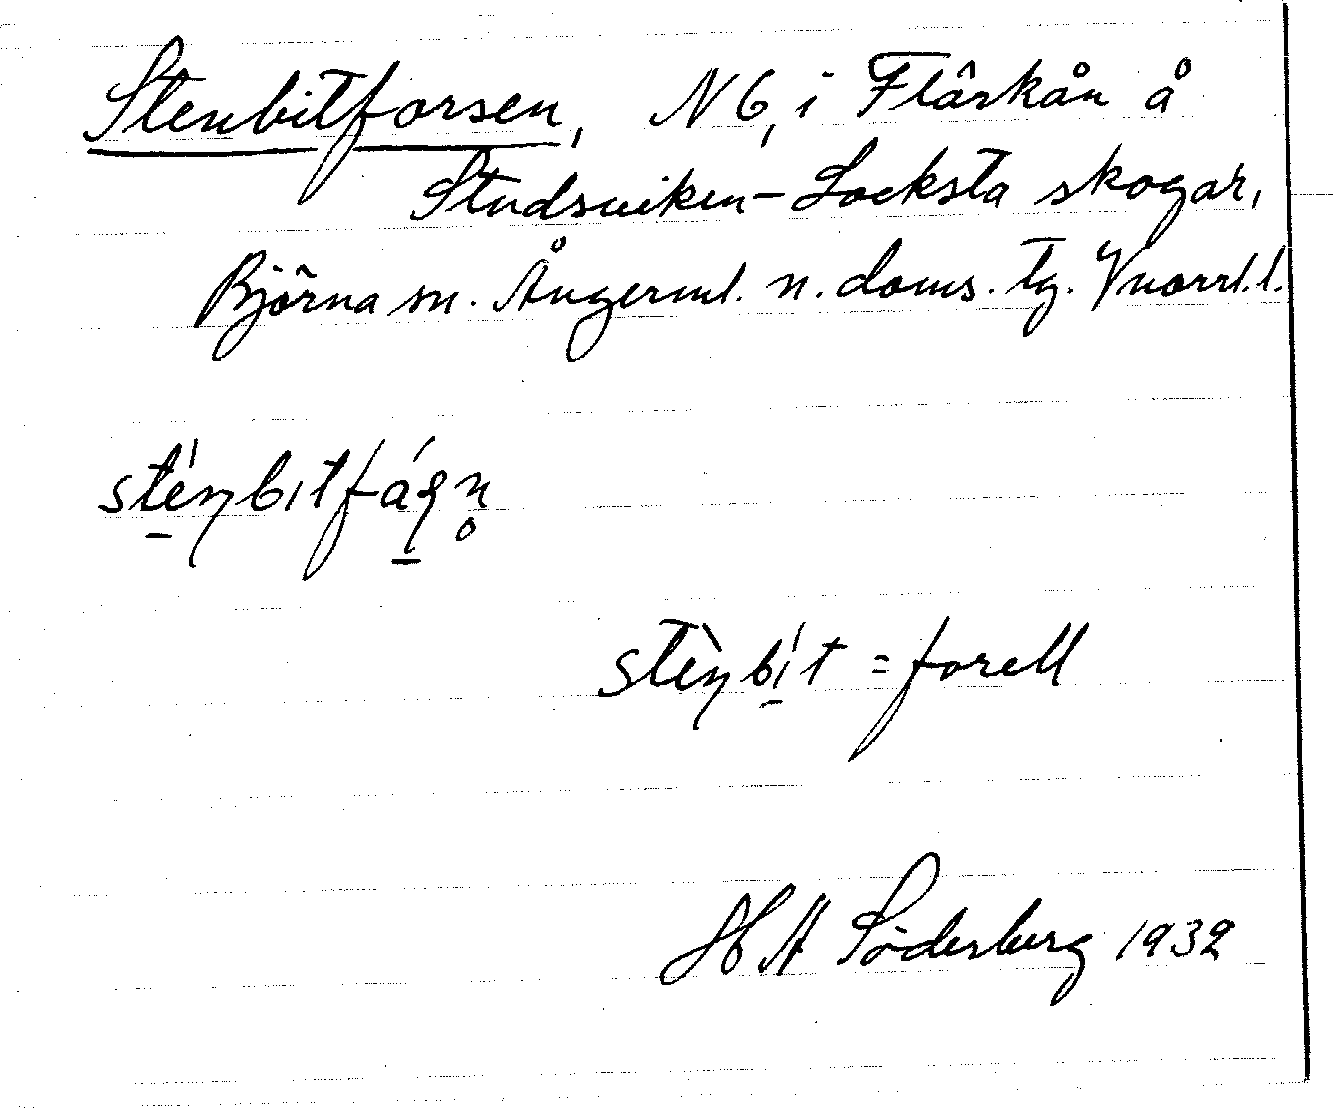 Stenbitforsen, NG, i Flärkån å
Studsviken-Locksta skogar,
Björna sn. Ångerml. n. doms. tg. Vnorrl. l.
stènbit = forell
H A Söderberg 1932